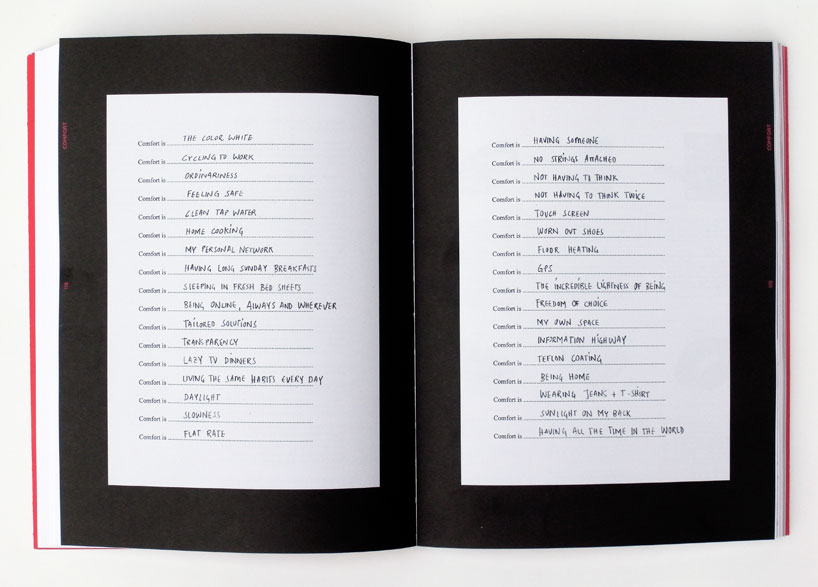 COMFORT
Comfort is THE COLOR WHITE
Comfort is CYCLING TO WORK
Comfort is ORDINARINESS
Comfort is FEELING SAFE
Comfort is CLEAN TAP WATER
Comfort is HOME COOKING
Comfort is MY PERSONAL NETWORK
Comfort is HAVING LONG SUNDAY BREAKFASTS
Comfort is SLEEPING IN FRESH BED SHEETS
Comfort is BEING ONLINE, ALWAYS AND WHEREVER
Comfort is TAILORED SOLUTIONS
Comfort is TRANSPARENCY
Comfort is LAZY TV DINNERS
Comfort is LIVING THE SAME HABITS EVERY DAY
Comfort is DAYLIGHT
Comfort is SLOWNESS
Comfort is FLAT RATE
Comfort is HAVING SOMEONE
Comfort is NO STRINGS ATTACHED
Comfort is NOT HAVING TO THINK
Comfort is NOT HAVING TO THINK TWICE
Comfort is TOUCH SCREEN
Comfort is WORN OUT SHOES
Comfort is FLOOR HEATING
Comfort is GPS
Comfort is THE INCREDIBLE LIGHTNESS OF BEING
Comfort is FREEDOM OF CHOICE
Comfort is MY OWN SPACE
Comfort is INFORMATION HIGHWAY
Comfort is TEFLON COATING
Comfort is BEING HOME
Comfort is WEARING JEANS + T-SHIRT
Comfort is SUNLIGHT ON MY BACK
Comfort is HAVING ALL THE TIME IN THE WORLD
COMFORT